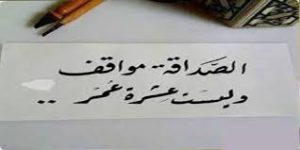 الصَّداقة مواقف
وليست عِشرة عُمر ..